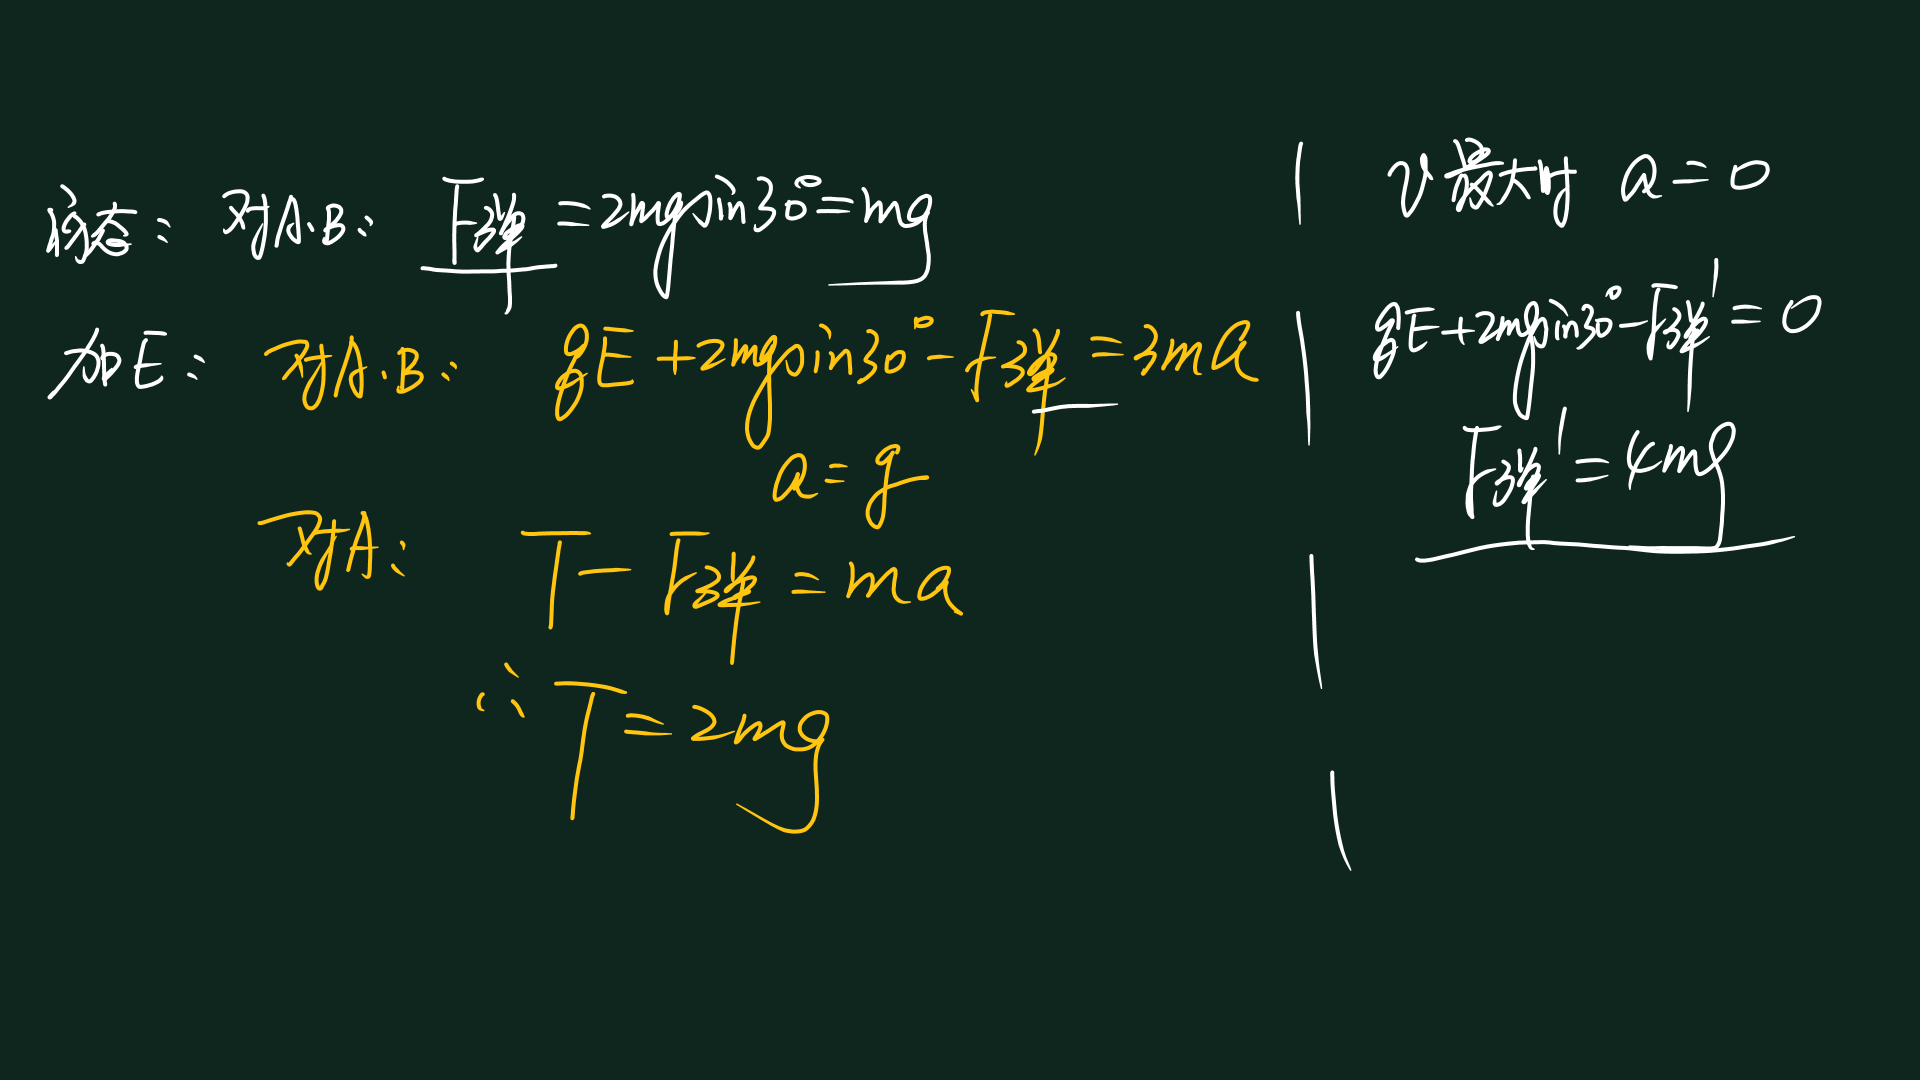 初态： 对A.B： F弹 = 2mgsin30° = mg
加E： 对A.B： qE + 2mgsin30° - F弹 = 3ma
a = g
对A： T - F弹 = ma
∴ T = 2mg
v最大时 a = 0
qE + 2mgsin30° - F弹' = 0
F弹' = 4mg